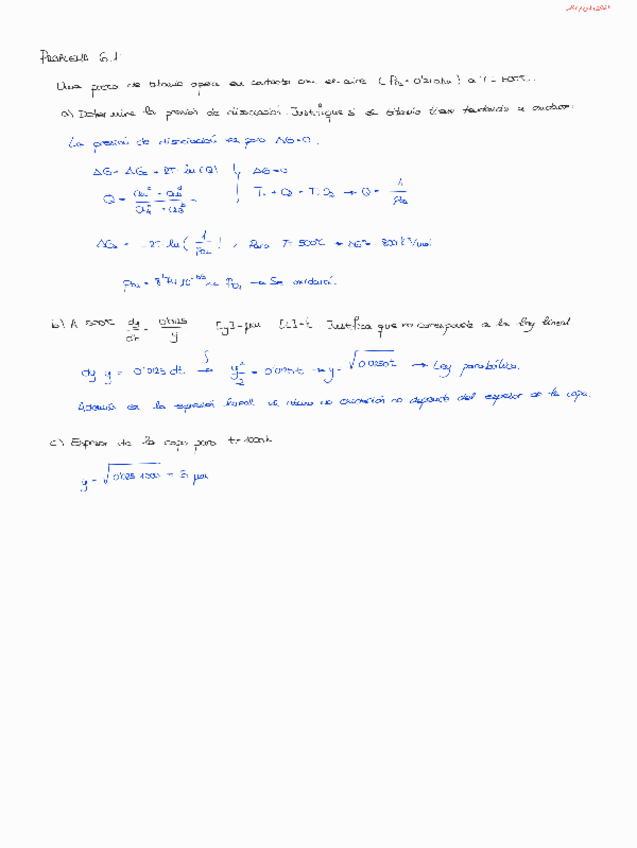 PROBLEMA 6.1
Una pieza de titanio opera en contacto con el aire (PO2 = 0'21 atm) a T = 500ºC.
a) Determine la presión de disociación. Justifique si el titanio tiene tendencia a oxidarse.
La presión de disociación es para ΔG=0.
ΔG = ΔG0 + RT · ln(Q) ΔG=0
Q = Ti + O2 = TiO2 → Q = 1/PO2
ΔG0 = -RT · ln(1/PO2), Para T=500ºC → ΔG0
PO2 = << PO2 → Se oxidará.
b) A 500ºC dy/dt = / y [y]=μm [t]=h Justifica que no corresponde a la ley lineal
dy y = 0'0125 dt ∫→ y²/2 = 0'0125 t → y = √0'0250 t → Ley parabólica.
Además en la expresión lineal el ritmo de oxidación no depende del espesor de la capa.
c) Espesor de la capa para t=1000h
y = √0'025·1000 = 5 μm